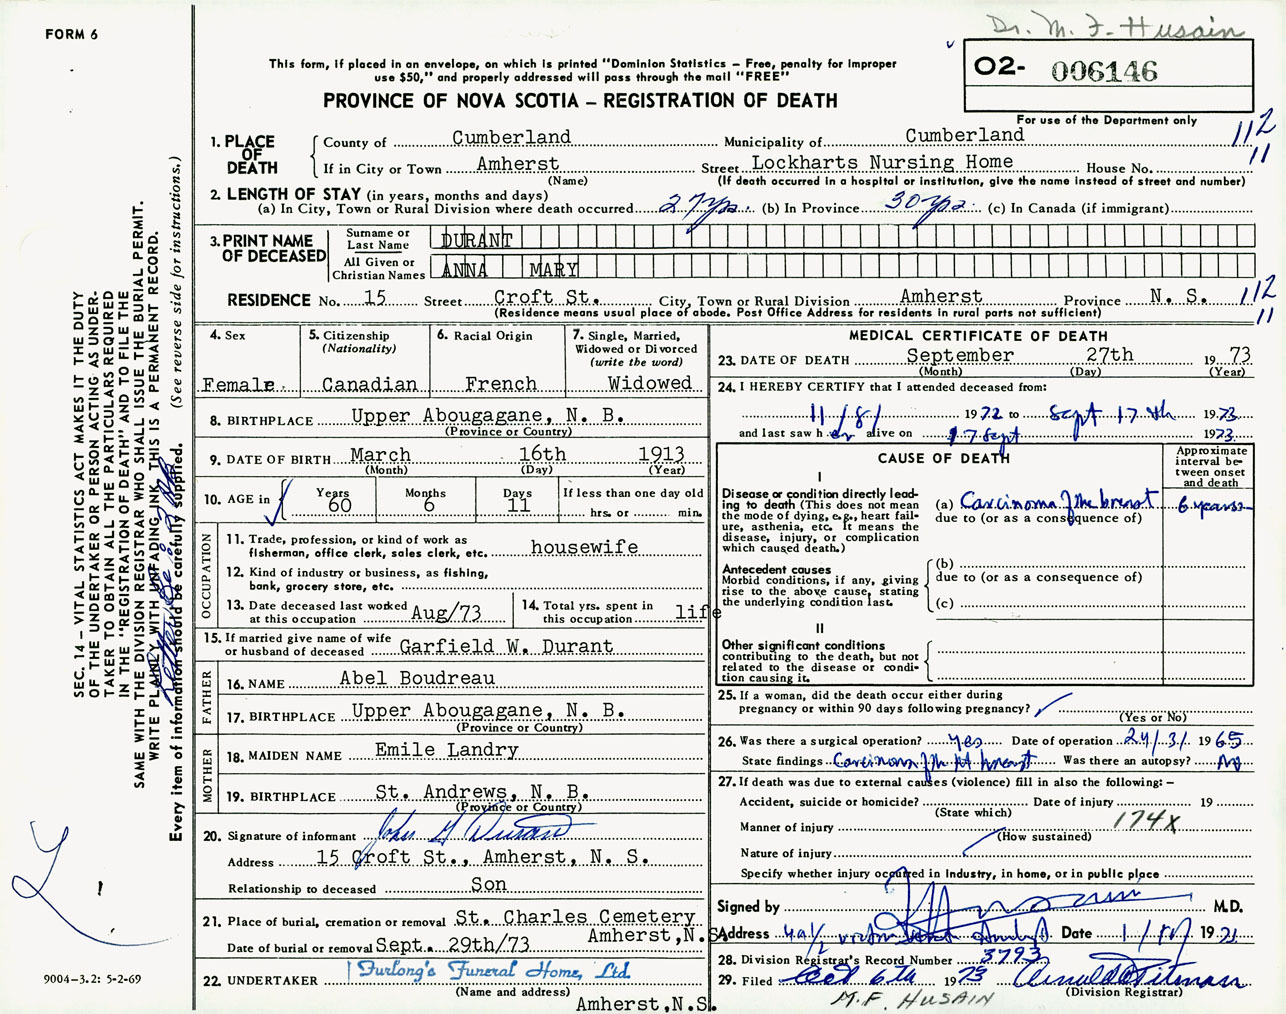 FORM 6
Dr. M. F. Husain
This form, if placed in an envelope, on which is printed "Dominion Statistics – Free, penalty for improper
use $50," and properly addressed will pass through the mail "FREE"
O2- 006146
PROVINCE OF NOVA SCOTIA – REGISTRATION OF DEATH
For use of the Department only
1. PLACE OF DEATH
County of Cumberland Municipality of Cumberland 112
If in City or Town Amherst Street Lockharts Nursing Home House No. 11
(Name) (If death occurred in a hospital or institution, give the name instead of street and number)
2. LENGTH OF STAY (in years, months and days)
(a) In City, Town or Rural Division where death occurred 27 yrs. (b) In Province 30 yrs. (c) In Canada (if immigrant)
3. PRINT NAME OF DECEASED
Surname or Last Name DURANT
All Given or Christian Names ANNA MARY
RESIDENCE No. 15 Street Croft St. City, Town or Rural Division Amherst Province N. S. 112
(Residence means usual place of abode. Post Office Address for residents in rural parts not sufficient) 11
4. Sex
Female.
5. Citizenship (Nationality)
Canadian
6. Racial Origin
French
7. Single, Married, Widowed or Divorced (write the word)
Widowed
8. BIRTHPLACE Upper Abougagane, N. B.
(Province or Country)
9. DATE OF BIRTH March 16th 1913
(Month) (Day) (Year)
10. AGE in Years 60 Months 6 Days 11 If less than one day old
hrs. or min.
OCCUPATION
11. Trade, profession, or kind of work as
fisherman, office clerk, sales clerk, etc. housewife
12. Kind of industry or business, as fishing,
bank, grocery store, etc.
13. Date deceased last worked
at this occupation Aug/73
14. Total yrs. spent in
this occupation life
15. If married give name of wife
or husband of deceased Garfield W. Durant
FATHER
16. NAME Abel Boudreau
17. BIRTHPLACE Upper Abougagane, N. B.
(Province or Country)
MOTHER
18. MAIDEN NAME Emile Landry
19. BIRTHPLACE St. Andrews, N. B.
(Province or Country)
20. Signature of informant John G Durant
Address 15 Croft St., Amherst, N. S.
Relationship to deceased Son
21. Place of burial, cremation or removal St. Charles Cemetery
Amherst,N.S.
Date of burial or removal Sept. 29th/73
22. UNDERTAKER Furlong's Funeral Home, Ltd.
(Name and address)
Amherst,N.S.
MEDICAL CERTIFICATE OF DEATH
23. DATE OF DEATH September 27th 1973
(Month) (Day) (Year)
24. I HEREBY CERTIFY that I attended deceased from:
11/8/ 1972 to Sept 17th 1973
and last saw her alive on 17 Sept 1973
CAUSE OF DEATH
Approximate interval between onset and death
I
Disease or condition directly lead-
ing to death (This does not mean
the mode of dying, e.g., heart fail-
ure, asthenia, etc. It means the
disease, injury, or complication
which caused death.)
(a) Carcinoma of the breast 6 years
due to (or as a consequence of)
Antecedent causes
Morbid conditions, if any, giving
rise to the above cause, stating
the underlying condition last.
(b)
due to (or as a consequence of)
(c)
II
Other significant conditions
contributing to the death, but not
related to the disease or condi-
tion causing it.
25. If a woman, did the death occur either during
pregnancy or within 90 days following pregnancy?
(Yes or No)
26. Was there a surgical operation? yes Date of operation 24/3/ 1965
State findings Carcinoma of the breast Was there an autopsy? No
27. If death was due to external causes (violence) fill in also the following: –
Accident, suicide or homicide? Date of injury 19
(State which)
Manner of injury 174X
(How sustained)
Nature of injury
Specify whether injury occurred in industry, in home, or in public place
Signed by M.D.
Address Date 19
28. Division Registrar's Record Number 3793
29. Filed Oct 6th 1973
(Division Registrar)
M.F. HUSAIN
SEC. 14 – VITAL STATISTICS ACT MAKES IT THE DUTY
OF THE UNDERTAKER OR PERSON ACTING AS UNDER-
TAKER TO OBTAIN ALL THE PARTICULARS REQUIRED
IN THE "REGISTRATION OF DEATH" AND TO FILE THE
SAME WITH THE DIVISION REGISTRAR WHO SHALL ISSUE THE BURIAL PERMIT.
WRITE PLAINLY WITH UNFADING INK, THIS IS A PERMANENT RECORD.
Every item of information should be carefully supplied. (See reverse side for instructions.)
9004-3.2: 5-2-69